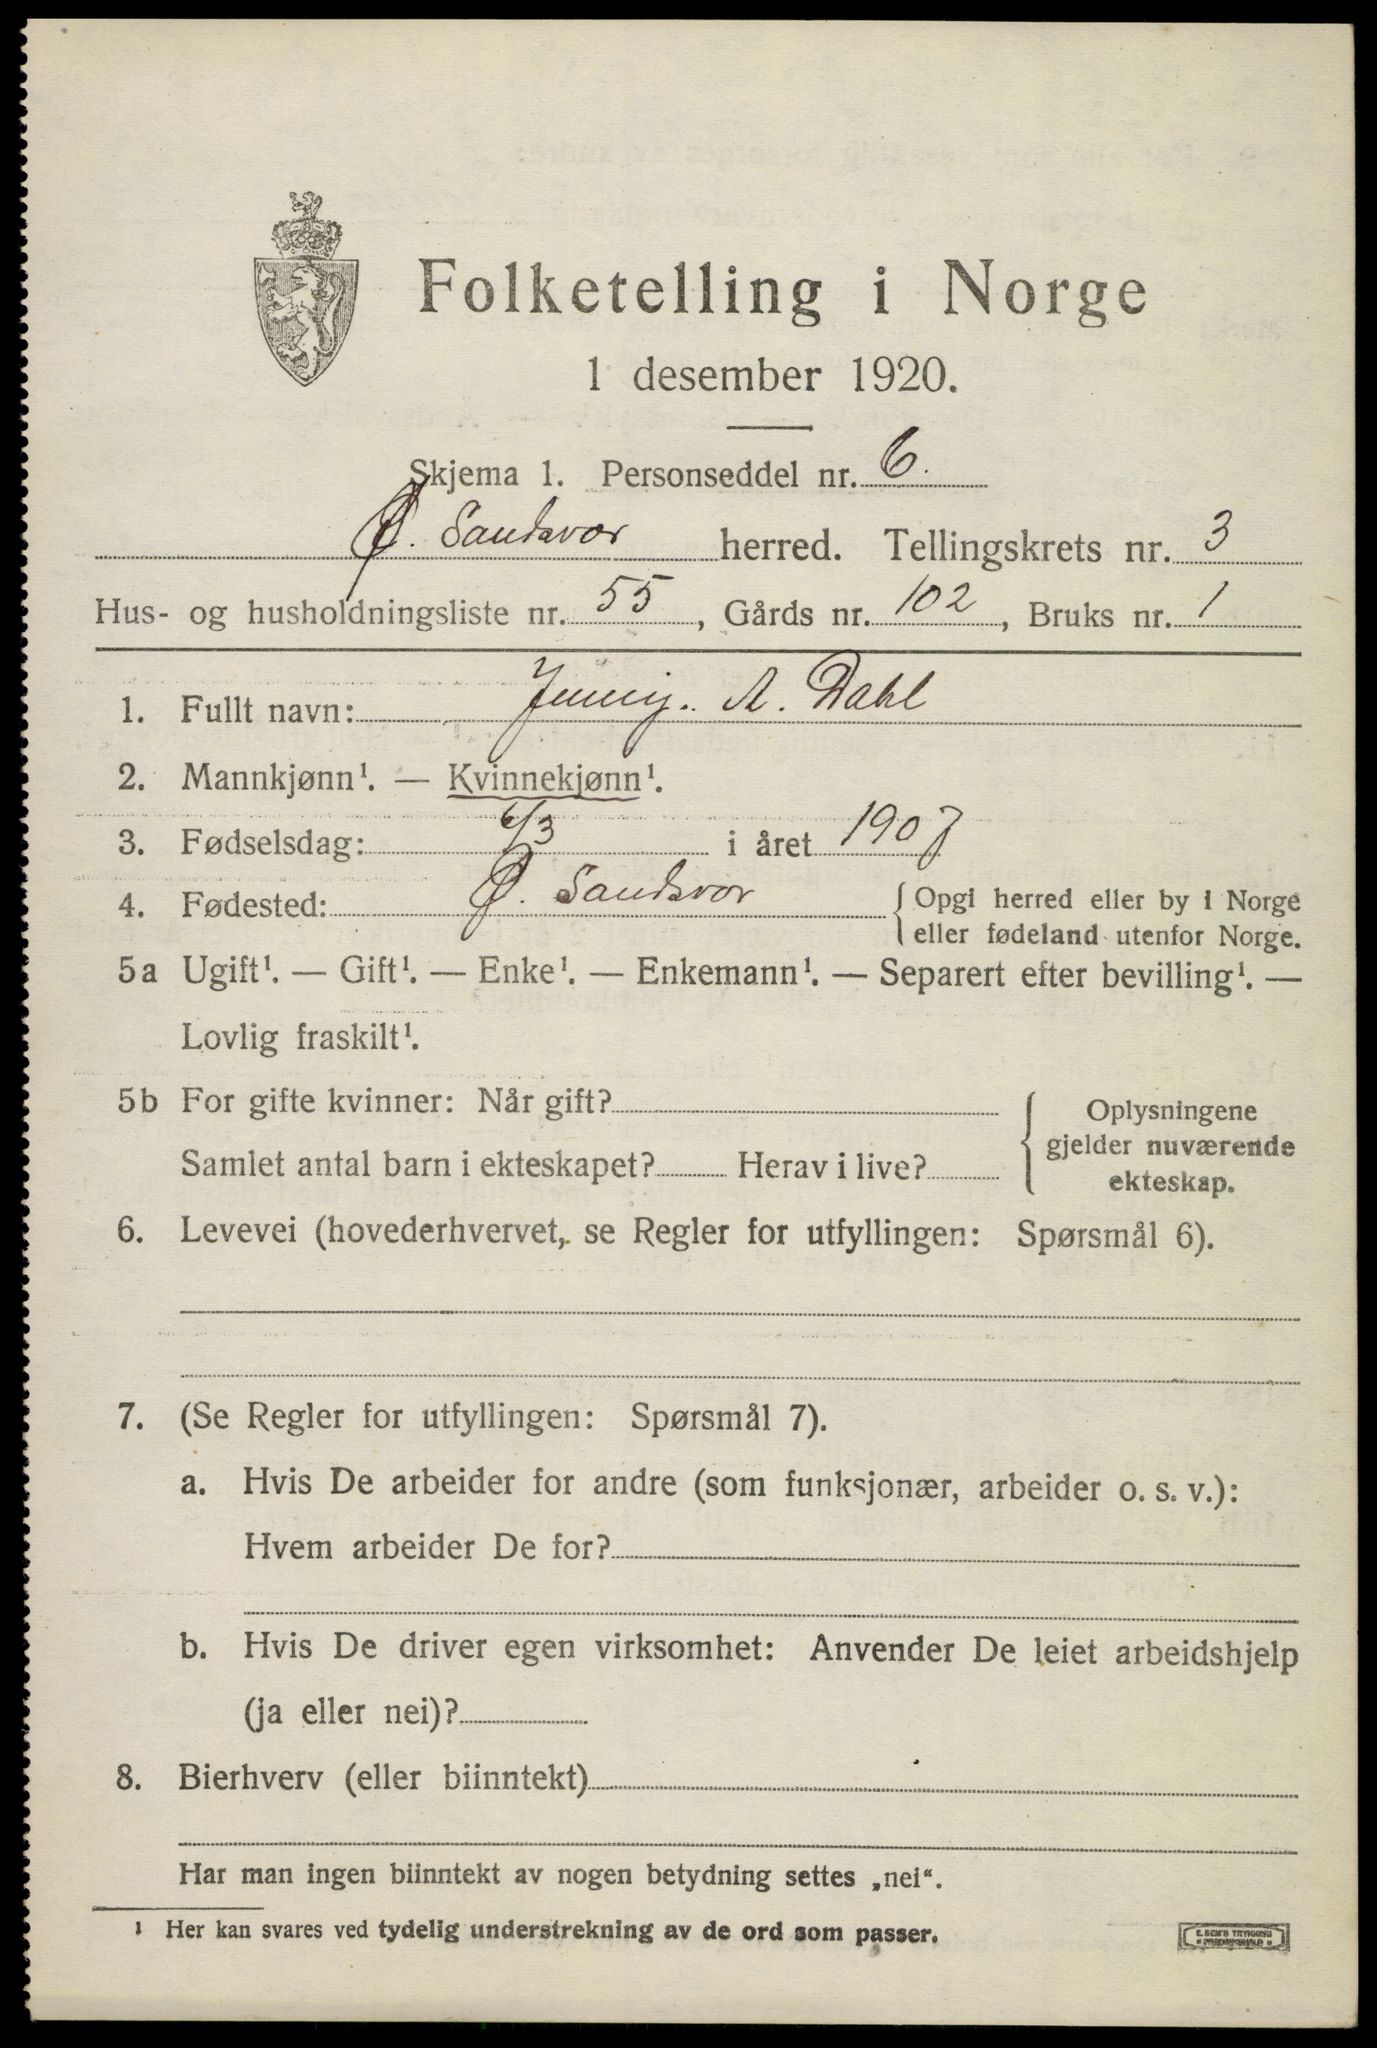 Folketelling i Norge
1 desember 1920.
Skjema 1. Personseddel nr. 6.
Ø. Sandsvær herred. Tellingskrets nr. 3
Hus- og husholdningsliste nr. 55, Gårds nr. 102, Bruks nr. 1
1. Fullt navn: Jenny. A. Dahl
2. Mannkjønn¹. — Kvinnekjønn¹.
3. Fødselsdag: 6/3 i året 1907
4. Fødested: Ø. Sandsvær { Opgi herred eller by i Norge
eller fødeland utenfor Norge.
5a Ugift¹. — Gift¹. — Enke¹. — Enkemann¹. — Separert efter bevilling¹. —
Lovlig fraskilt¹.
5b For gifte kvinner: Når gift?
Samlet antal barn i ekteskapet? Herav i live?
{ Oplysningene
gjelder nuværende
ekteskap.
6. Levevei (hovederhvervet, se Regler for utfyllingen: Spørsmål 6).
7. (Se Regler for utfyllingen: Spørsmål 7).
a. Hvis De arbeider for andre (som funksjonær, arbeider o. s. v.):
Hvem arbeider De for?
b. Hvis De driver egen virksomhet: Anvender De leiet arbeidshjelp
(ja eller nei)?
8. Bierhverv (eller biinntekt)
Har man ingen biinntekt av nogen betydning settes „nei“.
¹ Her kan svares ved tydelig understrekning av de ord som passer.
E. SEM'S TRYKKERI
FREDRIKSHALD